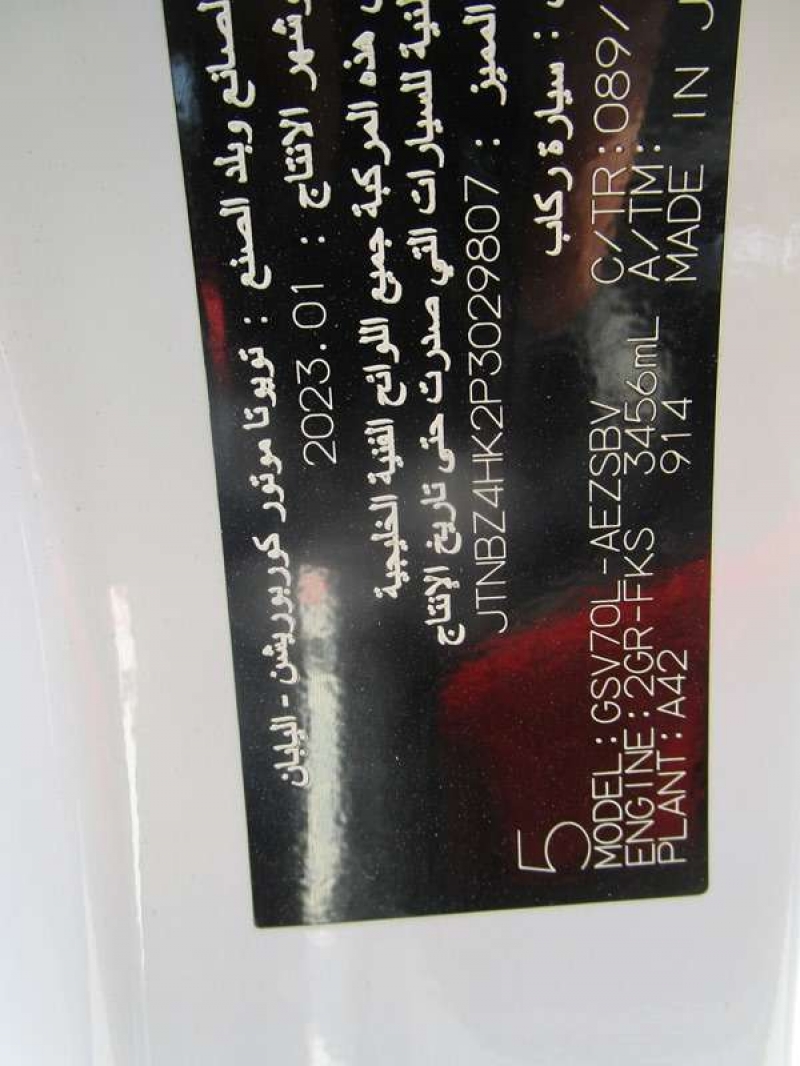 الصانع وبلد الصنع : تويوتا موتور كوربوريشن - اليابان
وشهر الانتاج : 2023.01
هذه المركبة جميع اللوائح الفنية الخليجية
للسيارات التي صدرت حتى تاريخ الإنتاج
المميز : JTNBZ4HK2P3029807
: سيارة ركاب
5
MODEL : GSV70L-AEZSBV C/TR : 089/
ENGINE : 2GR-FKS 3456mL A/TM :
PLANT : A42 914 MADE IN